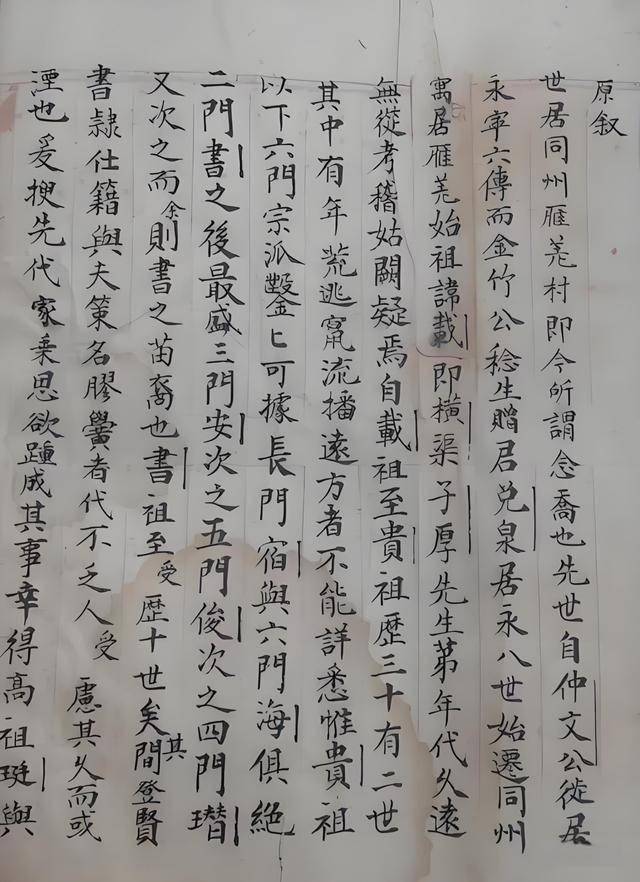 原叙
世居同州雁羌村即今所謂念喬也先世自仲文公徙居
永宰六傳而金竹公稔生贈君兑泉居永八世始遷同州
寓居雁羌始祖諱載即橫渠子厚先生第年代久遠
無從考稽姑闕疑焉自載祖至貴祖歷三十有二世
其中有年荒逃竄流播遠方者不能詳悉惟貴祖
以下六門宗派鑿匕可據長門宿與六門海俱絶
二門書之後最盛三門安次之五門俊次之四門瑨
又次之而余則書之苗裔也書祖至受歷十世矣其間登賢
書隸仕籍與夫策名膠黌者代不乏人受慮其久而或
湮也爰搜先代家乘思欲踵成其事幸得高祖珽與